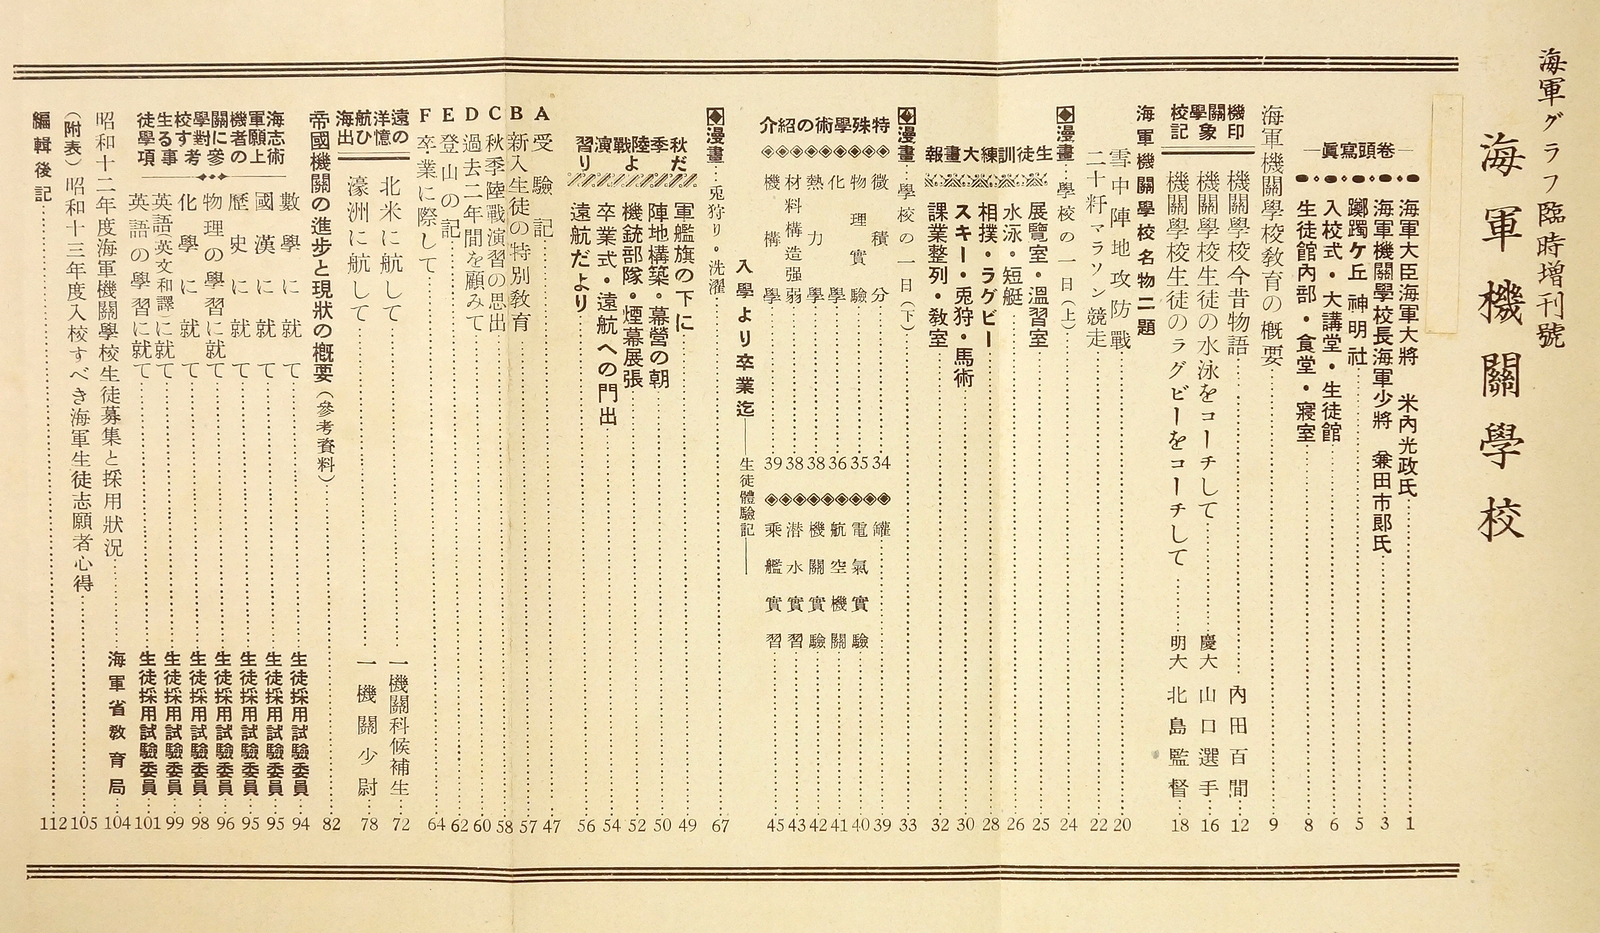 海軍グラフ臨時增刊號
海軍機關學校
卷頭寫眞
海軍大臣海軍大將 米內光政氏 1
海軍機關學校長海軍少將 兼田市郞氏 3
躑躅ケ丘 神明社 5
入校式・大講堂・生徒館 6
生徒館內部・食堂・寢室 8
海軍機關學校敎育の槪要 9
機關學校印象記
機關學校今昔物語 內田百間 12
機關學校生徒の水泳をコーチして 慶大 山口選手 16
機關學校生徒のラグビーをコーチして 明大 北島監督 18
海軍機關學校名物二題
雪中陣地攻防戰 20
二十粁マラソン競走 22
漫畫 學校の一日(上) 24
生徒訓練大畫報
展覽室・溫習室 25
水泳・短艇 26
相撲・ラグビー 28
スキー・兎狩・馬術 30
課業整列・敎室 32
漫畫 學校の一日(下) 33
特殊學術の紹介
微積分 34
物理實驗 35
化學 36
熱力學 38
材料構造强弱 38
機構學 39
罐 39
電氣實驗 40
航空機關 41
機關實驗 42
潜水實習 43
乘艦實習 45
入學より卒業迄―生徒體驗記―
漫畫 兎狩り。洗濯 67
秋季陸戰演習だより
軍艦旗の下に 49
陣地構築・幕營の朝 50
機銃部隊・煙幕展張 52
卒業式・遠航への門出 54
遠航だより 56
A 受驗記 47
B 新入生徒の特別敎育 57
C 秋季陸戰演習の思出 58
D 過去二年間を顧みて 60
E 登山の記 62
F 卒業に際して 64
遠洋航海の憶ひ出
北米に航して 一機關科候補生 72
濠洲に航して 一機關少尉 78
帝國機關の進步と現狀の槪要(參考資料) 82
海軍機關學校生徒志願者に對する學術上の參考事項
數學に就て 生徒採用試驗委員 94
國漢に就て 生徒採用試驗委員 95
歷史に就て 生徒採用試驗委員 95
物理の學習に就て 生徒採用試驗委員 96
化學に就て 生徒採用試驗委員 98
英語(英文和譯)に就て 生徒採用試驗委員 99
英語の學習に就て 生徒採用試驗委員 101
昭和十二年度海軍機關學校生徒募集と採用狀況 海軍省敎育局 104
(附表) 昭和十三年度入校すべき海軍生徒志願者心得 105
編輯後記 112